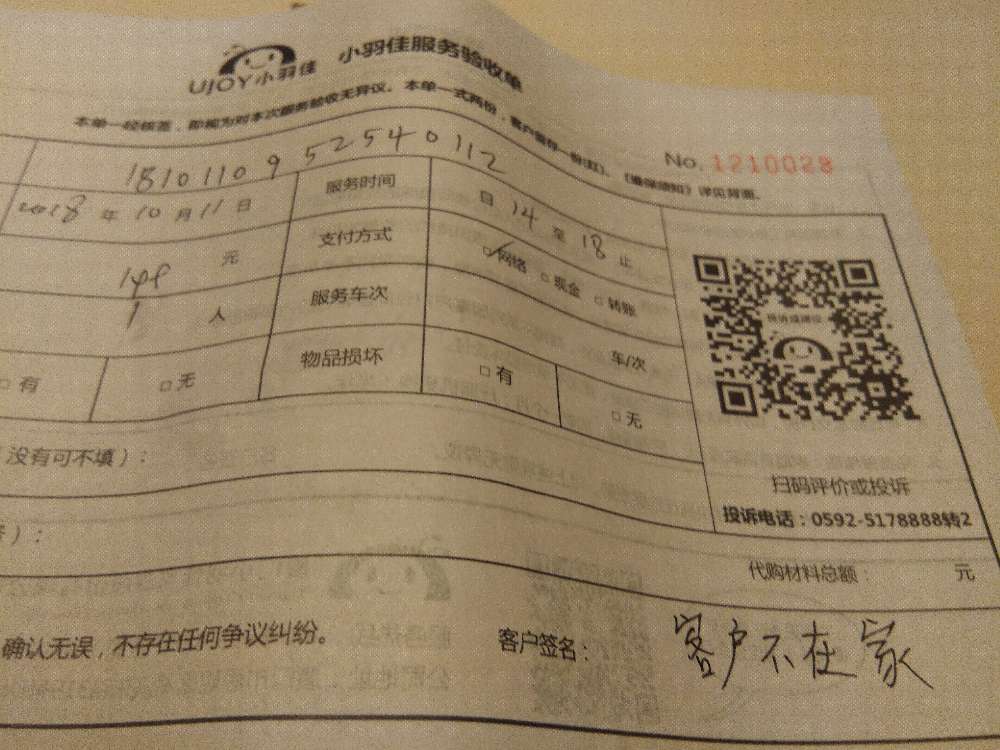 UJOY小羽佳 小羽佳服务验收单
本单一经核签，即视为对本次服务验收无异议。本单一式两份，客户留存一份(红)。《善保须知》详见背面。
No. 1210028
18101109525540112
2018 年 10 月 11 日 服务时间 日 14 至 18 止
元 支付方式 ☑网络 □现金 □转账
1 人 服务车次 车/次
□有 □无 物品损坏 □有 □无
没有可不填）：
扫码评价或投诉
投诉电话：0592-5178888转2
）：
代购材料总额： 元
确认无误，不存在任何争议纠纷。
客户签名： 客户不在家